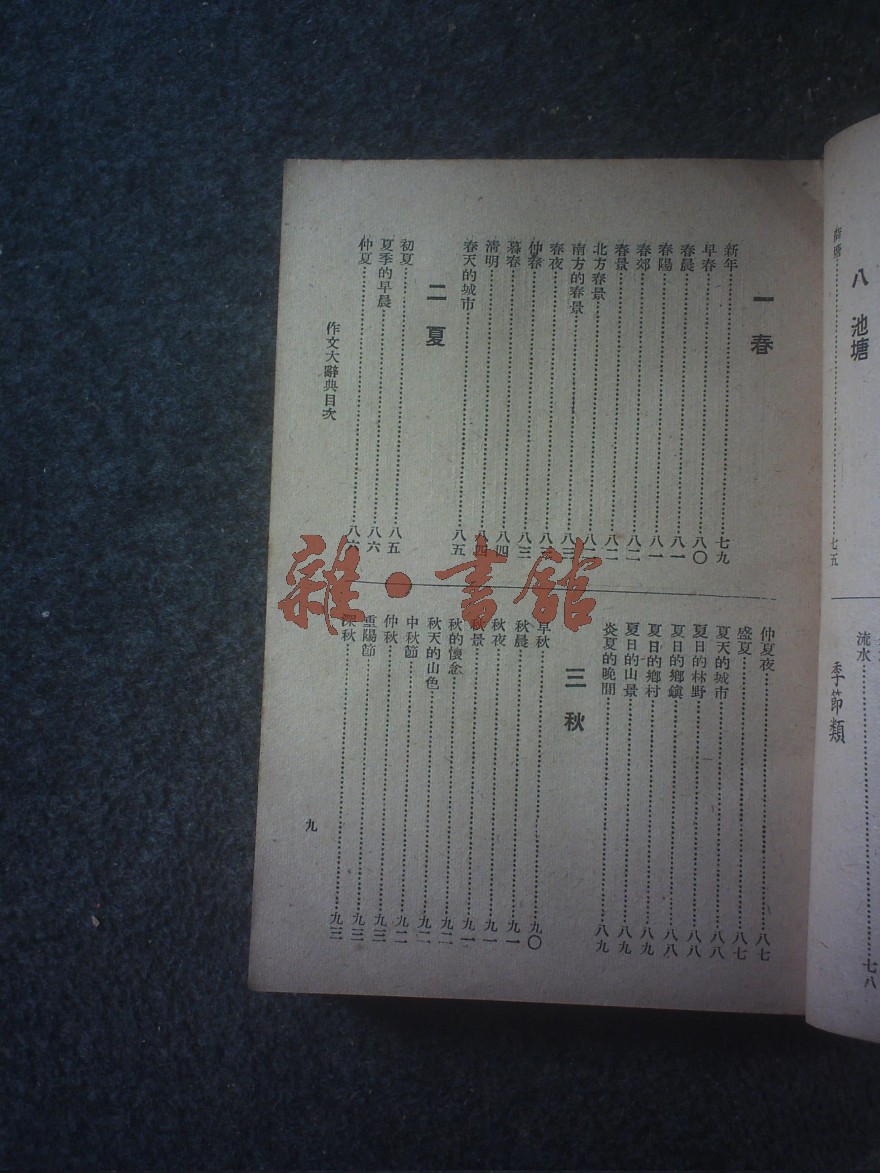 八 池塘
塘……七五
流水……七八
季節類
一 春
新年……七九
早春……八〇
春晨……八一
春陽……八一
春郊……八二
春景……八二
北方春景……八二
南方的春景……八三
春夜……八三
仲春……八三
暮春……八四
清明……八四
春天的城市……八五
二 夏
初夏……八五
夏季的早晨……八六
仲夏……八六
仲夏夜……八七
盛夏……八七
夏天的城市……八八
夏日的林野……八八
夏日的鄉鎮……八八
夏日的鄉村……八九
夏日的山景……八九
炎夏的晚間……八九
三 秋
早秋……九〇
秋晨……九一
秋夜……九一
秋景……九一
秋的懷念……九二
秋天的山色……九二
中秋節……九二
仲秋……九三
重陽節……九三
深秋……九三
作文大辭典目次
九
雜·書館